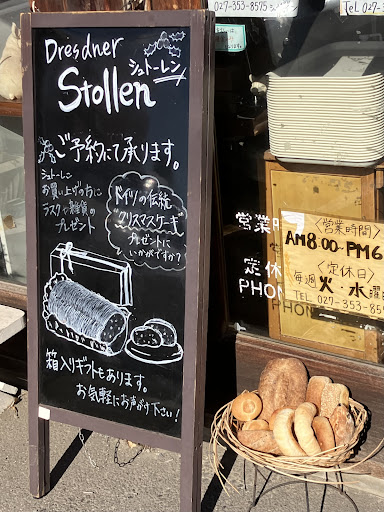 Dresdner
Stollen
シュトーレン
ご予約にて承ります。
シュトーレン
お買い上げの方に
ラスクや雑貨の
プレゼント
ドイツの伝統
クリスマスケーキ
プレゼントに
いかがですか?
箱入りギフトもあります。
お気軽にお声がけ下さい!
027-353-8575
TEL
営業時間
<営業時間>
AM8:00-PM6
定休
<定休日>
毎週火・水曜
PHON
TEL 027-353-85